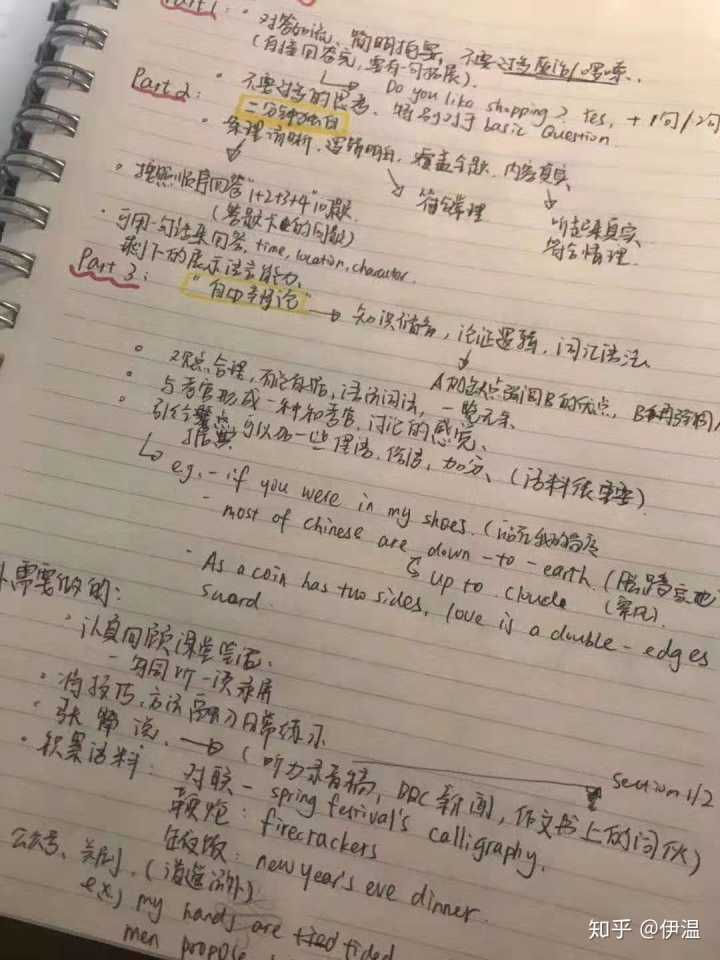 Part 1: · 对答如流、简明扼要, 不要过多废话/啰嗦.
(直接回答完,要有一句拓展).
Do you like shopping? Yes, +1句/2句
· 不要过多的思考、特别对于 basic Question.
Part 2: 二分钟独白
· 条理清晰、逻辑明白, 覆盖全题, 内容真实
符合常理
听起来真实 符合情理.
· 按照顺序回答 "1+2+3+4"问题.
(答题卡上的问题)
· 可用一句话来回答, time, location, character.
剩下的展示语言能力、
Part 3: "自由辩论" → 知识储备, 论证逻辑, 词汇语法、
A的缺点 强调B的优点,
· 观点合理, 语法词法, 一览无余、
· 与考官形成一种和考官, 讨论的感觉、
· 引经据典 可以加一些俚语, 俗语, 加分、(语料很重要)
e.g. - if you were in my shoes.
- most of chinese are down-to-earth. (脚踏实地
up to clouds
- As a coin has two sides, love is a double-edges
sward.
外需要做的:
· 认真回顾课堂笔记、
一句句听一读录屏
· 将技巧、方法融入日常练习
· 积累语料: (听力录音稿, BBC新闻, 作文书上的词伙)
Section 1/2
对联 - spring festival's calligraphy.
鞭炮: firecrackers
年夜饭: new year's eve dinner.
公众号、美剧、
e(x.) my hands are tied tided
men propose
知乎 @伊温